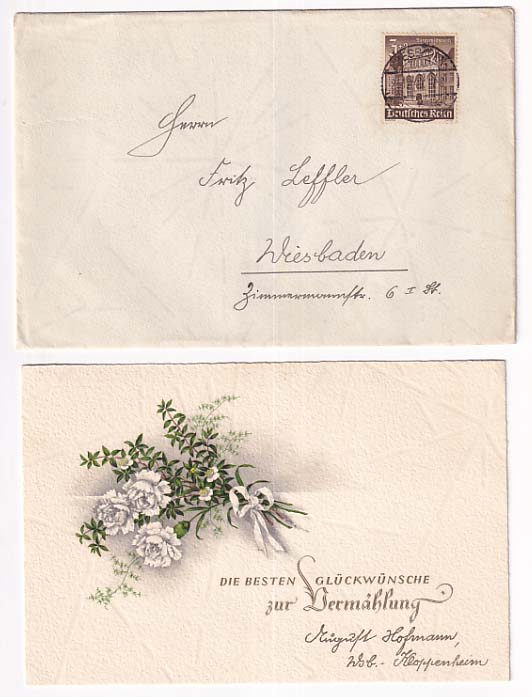 Deutsches Reich
Herrn
Fritz Leffler
Wiesbaden
Zimmermannstr. 6 I St.
DIE BESTEN GLÜCKWÜNSCHE
zur Vermählung
August Hofmann,
Wsb.-Kloppenheim